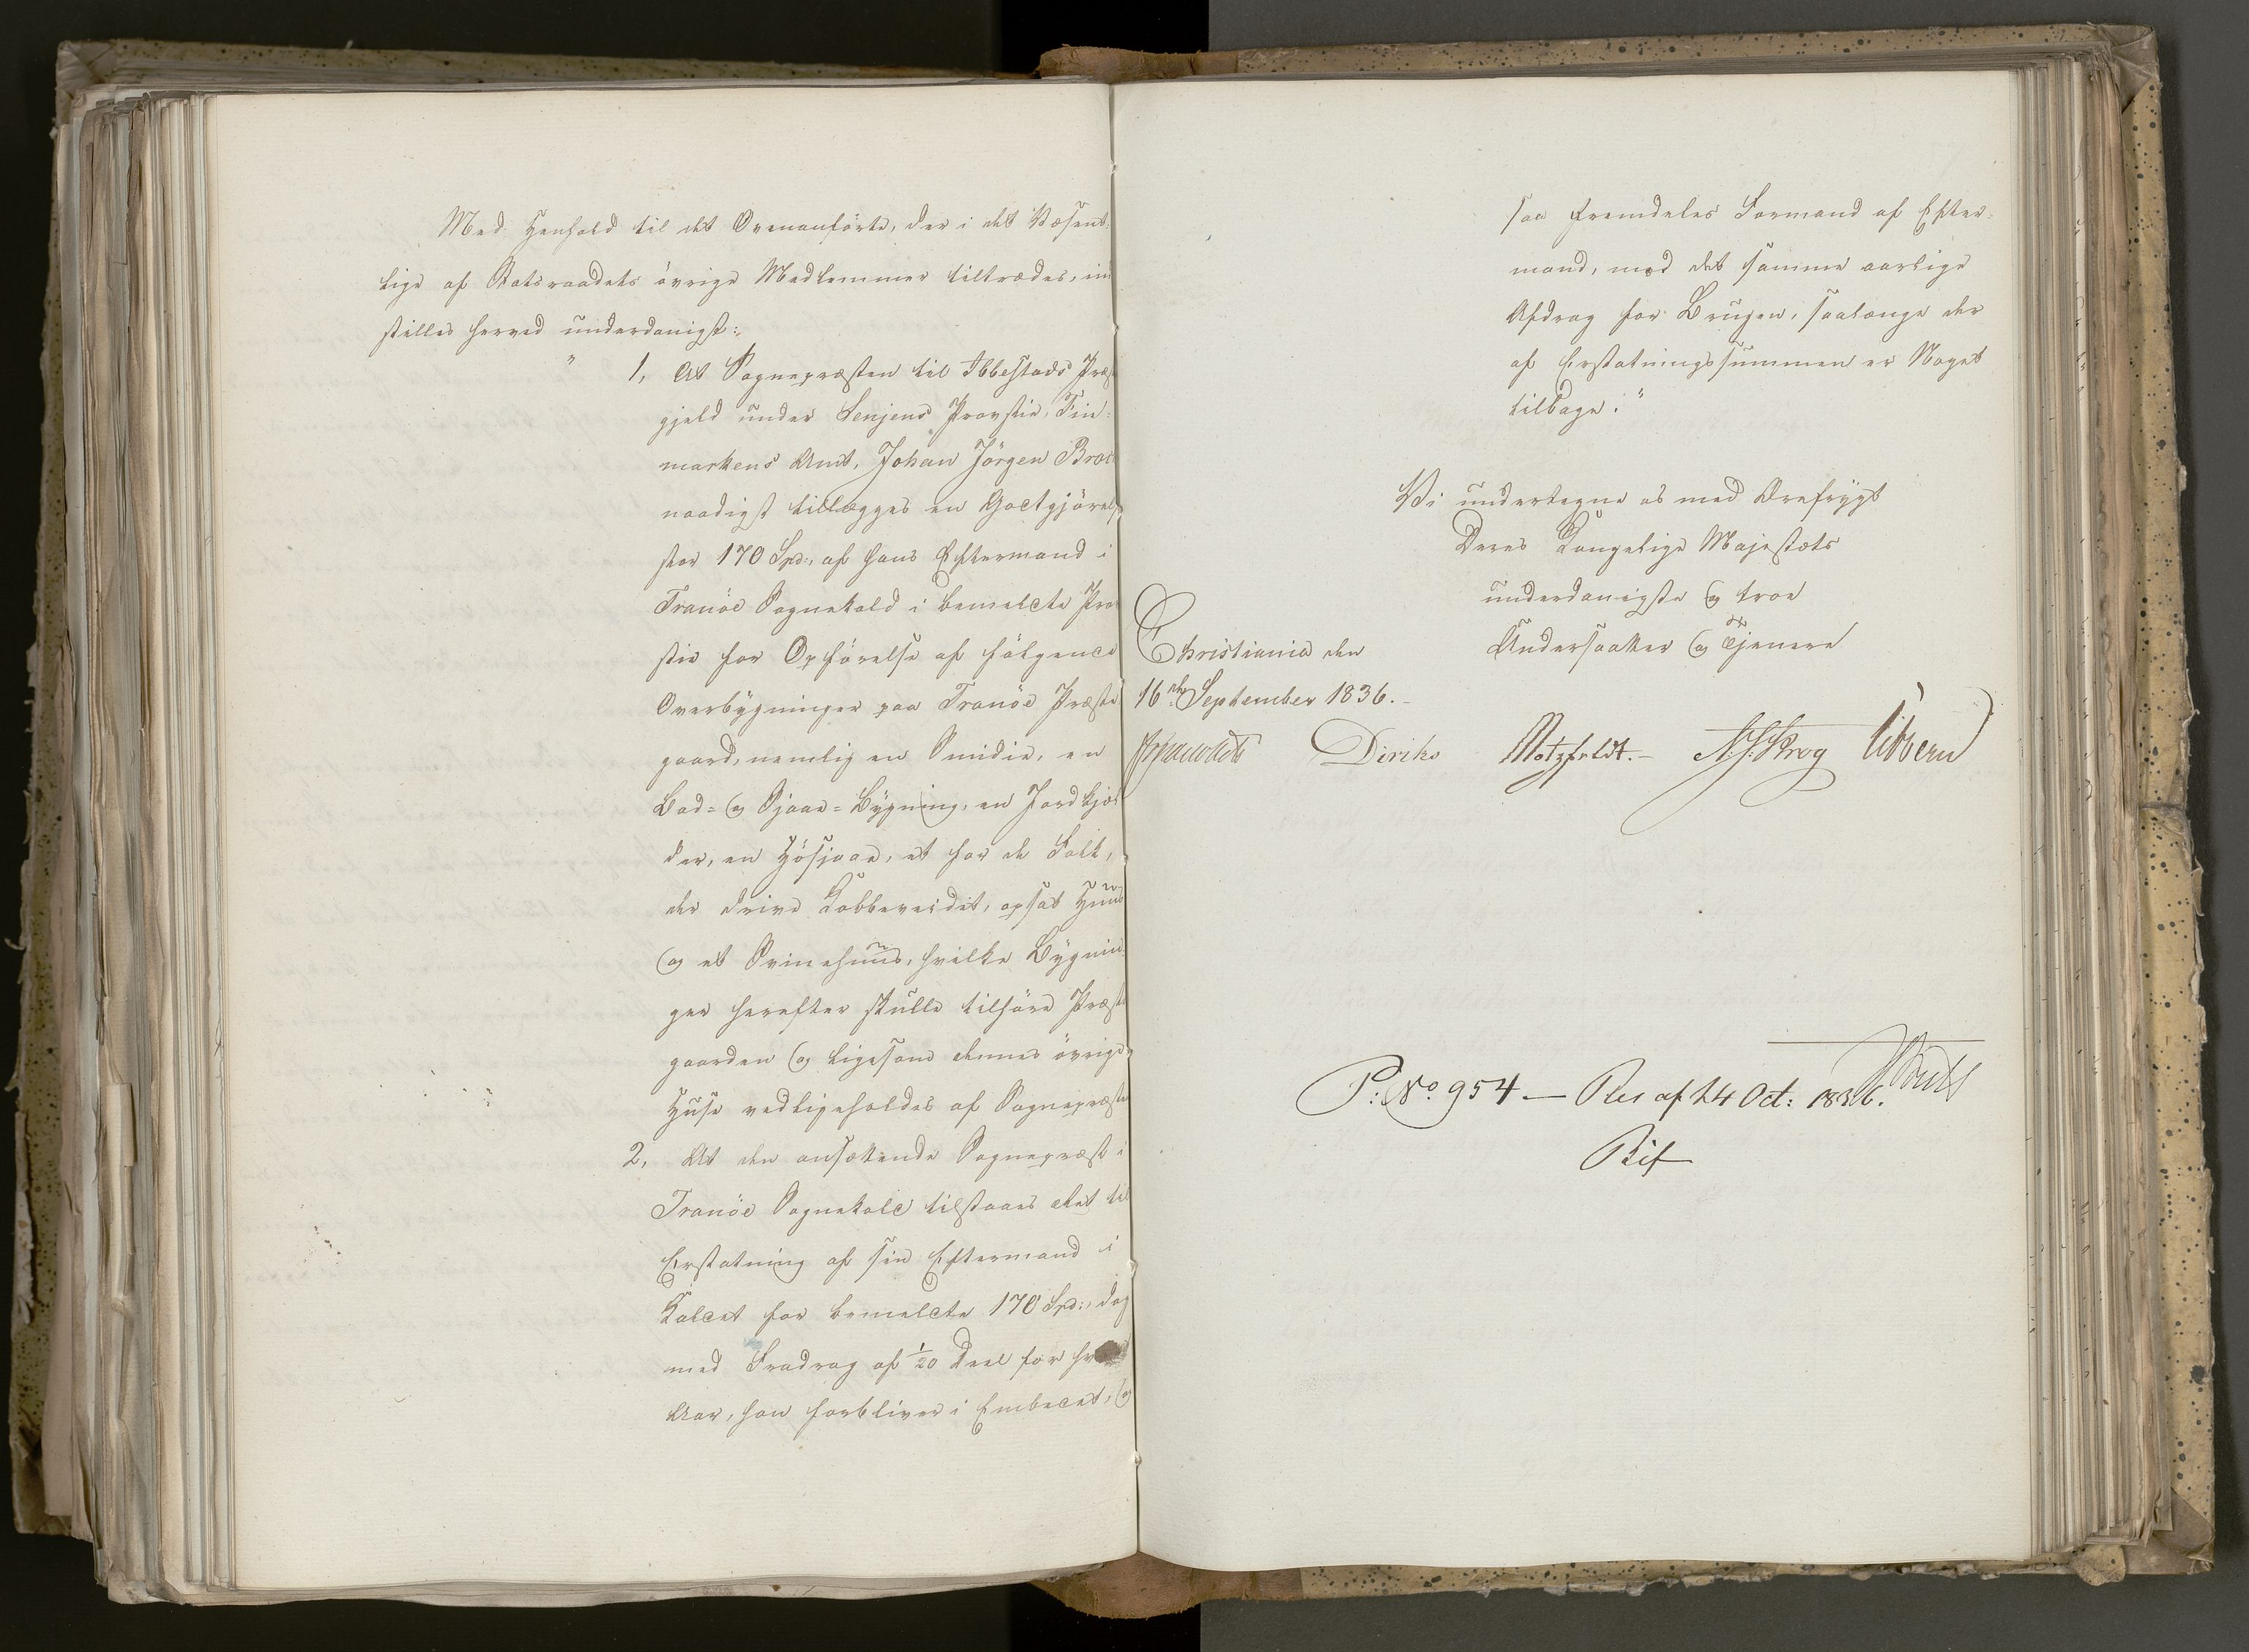 Med Henhold til det Ovenanförte, der i det Væsent-
lige af Statsraadets övrige Medlemmer tiltrædes, ind
stilles herved underdanigst:
" 1, At Sognepræsten til Ibbestads Præste
gjeld under Senjens Provstie, Fin-
markens Amt, Johan Jörgen Broch
naadigst tillægges en Godtgjörelse
stor 170 Spd:, af hans Eftermand i
Tranöe Sognekald i bemeldte Prov
stie for Opförelse af fölgende
Overbygninger paa Tranöe Præste
gaard, nemlig en Smidie, en
Bod- og Sjaae-Bygning, en Jordkjæl
der, en Hösjaae, et for de Folk,
der drive Kobbeveidet, opsat Huus
og et Svinehuus, hvilke Bygnin-
ger herefter skulle tilhöre Præste
gaarden og ligesom dennes övrige
Huse vedligeholdes af Sognepræsten
2, At den ansættende Sognepræst i
Tranöe Sognekald tilstaaes Ret til
Erstatning af sin Eftermand i
Kaldet for bemeldte 170 Spd:, dog
med Fradrag af 1/20 Deel for hvert
Aar, han forbliver i Embedet, og
saa fremdeles Formand af Efter-
mand, med det samme aarlige
Afdrag for Brugen, saalænge der
af Erstatningssummen er Noget
tilbage."
Vi undertegne os med Ærefrygt
Deres Kongelige Majestæts
underdanigste og troe
Undersaatter og Tjenere
Christiania den
16de September 1836.-
Diriks Motzfeldt.- Krog Sibbern
P: No. 954 — Res af 24 Oct: 1836.